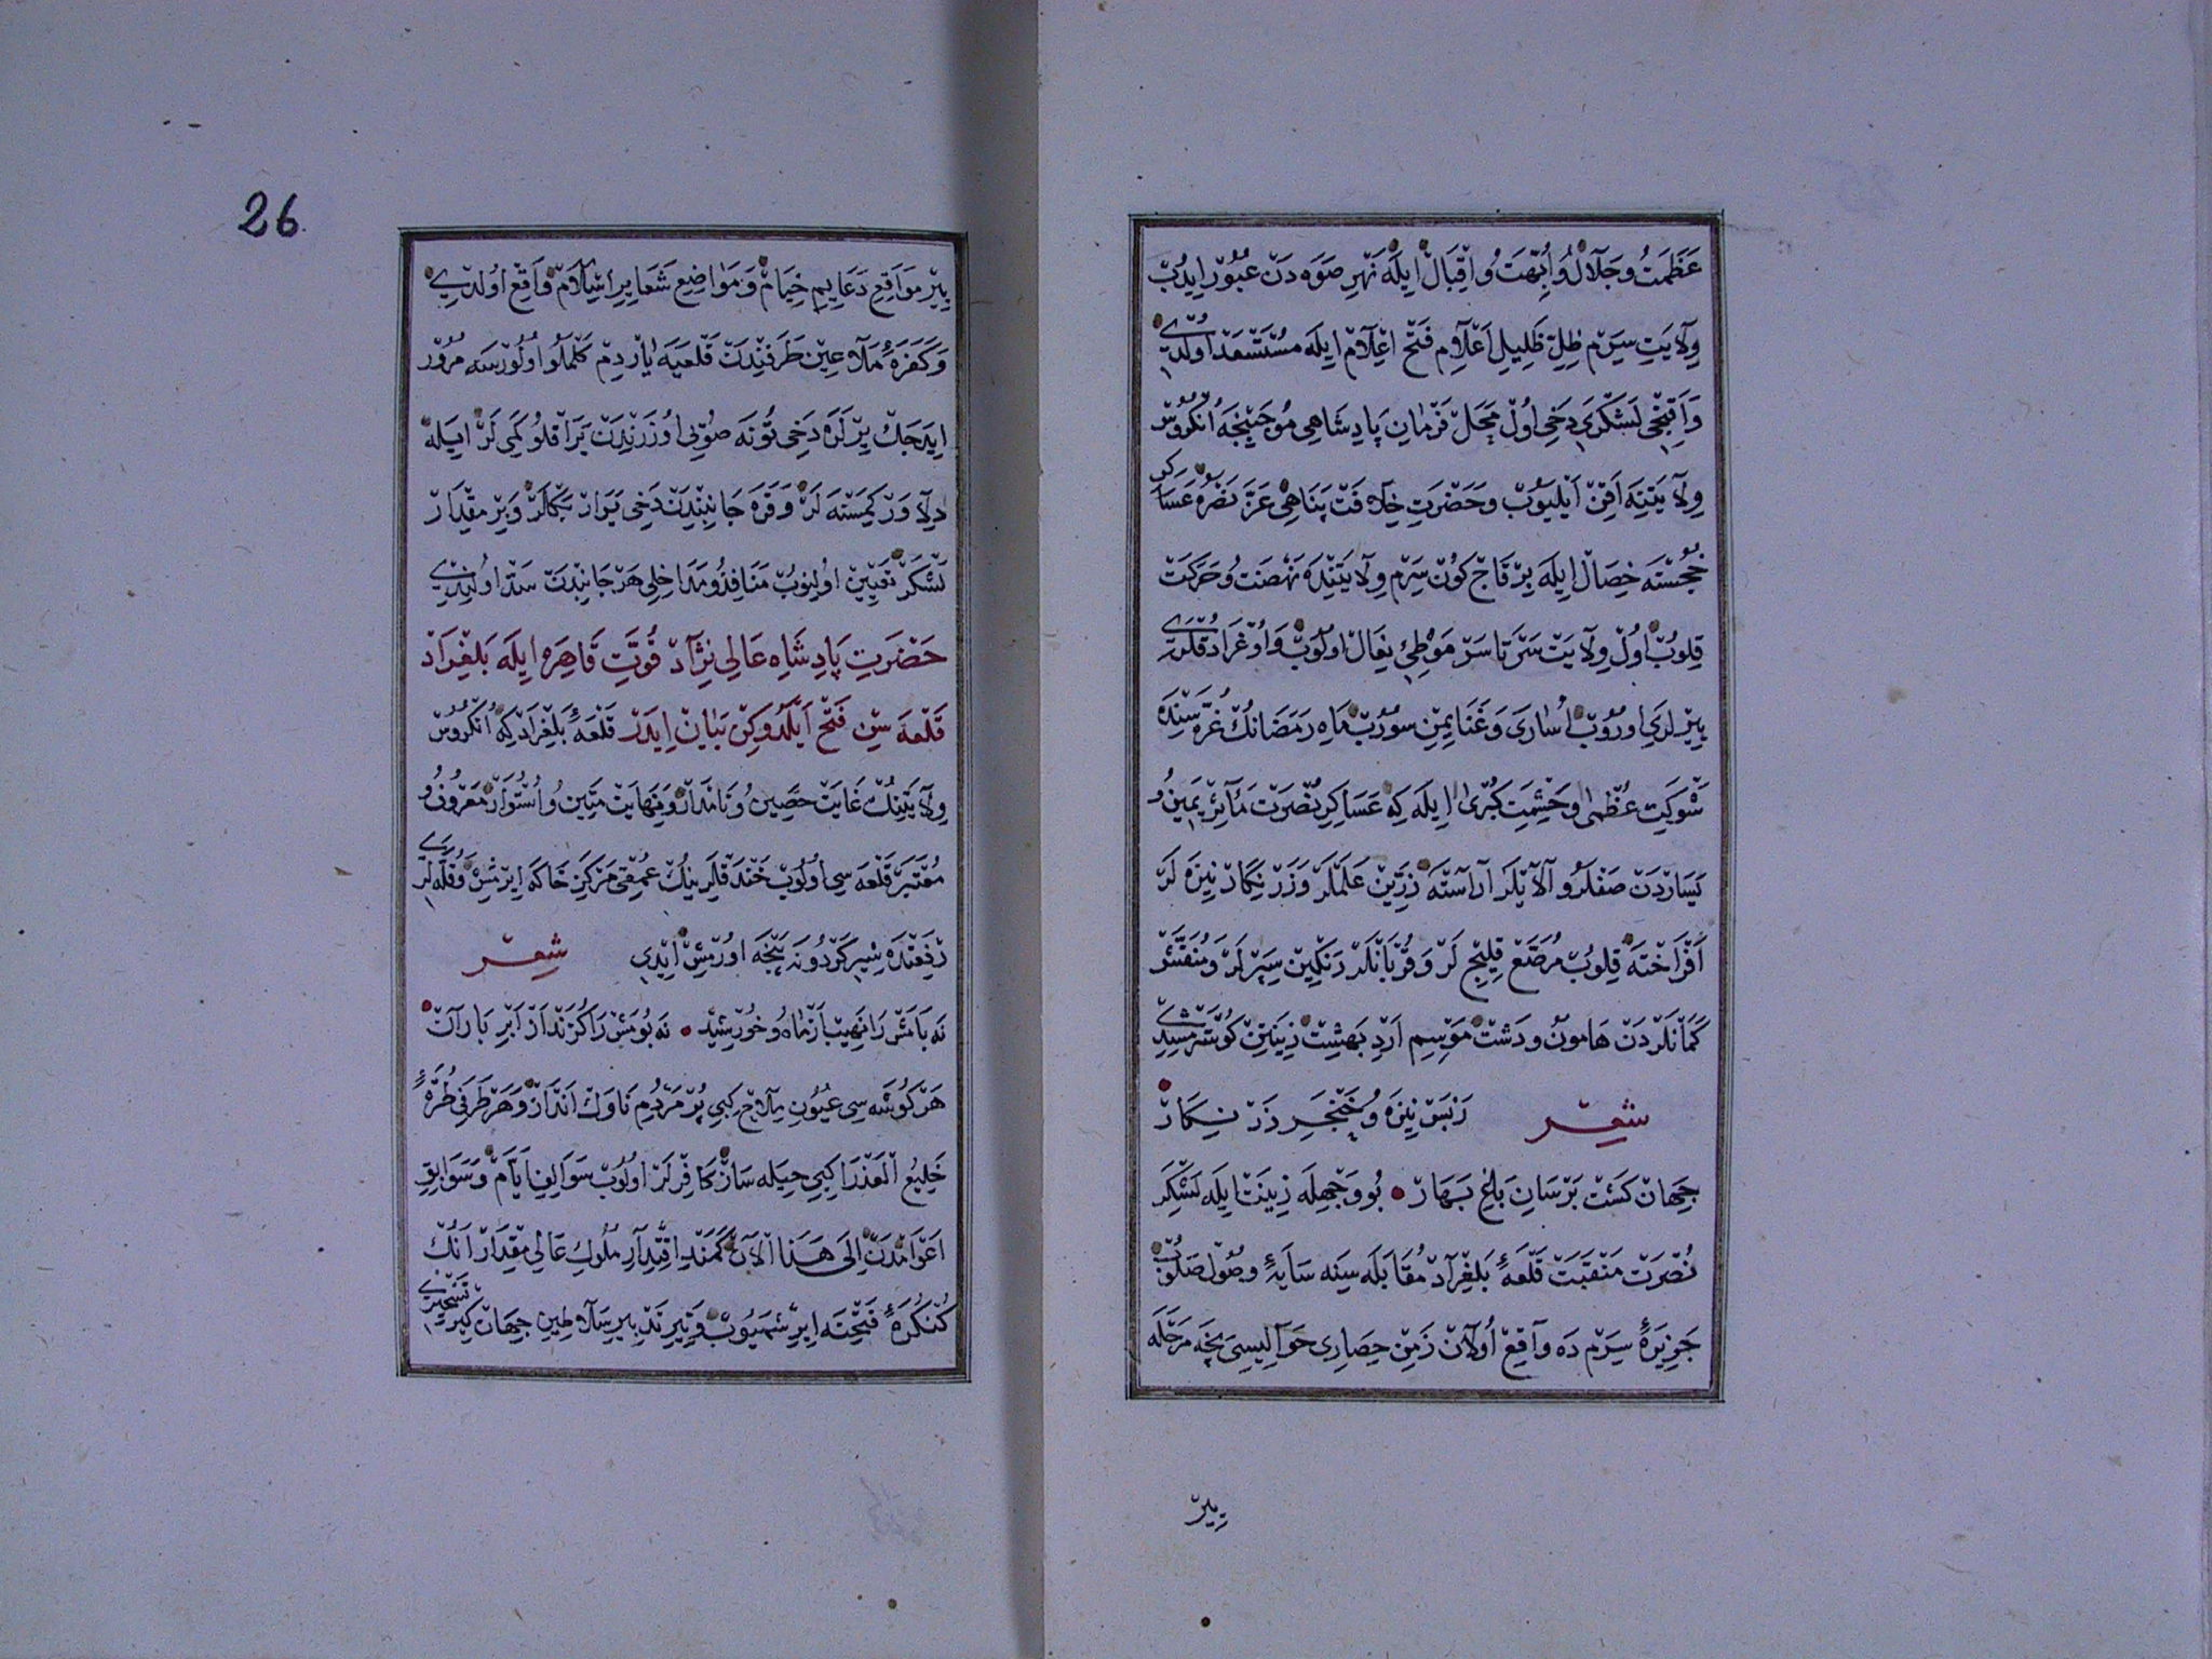 عَظَمَتْ وُ جَلَالْ وُ اُبُّهَتْ وُ اِقْبَالْ اِيلَهْ نَهْرِ صَوَه دَنْ عُبُورْ اِيدُبْ
وِلَايَتِ سِرَمْ ظِلِّ ظَلِيلِ اَعْلَامِ فَتْح اِعْلَامْ اِيلَه مُسْتَسْعَدْ اُولْدِي
وَ اَقِنْجِي لَشْكَرِي دَخِي اُولْ مَحَلْ فَرْمَانِ پَادِشَاهِي مُوجَبِنْجَه اُنْكُرُوسْ
وِلَايَتِنَه اَقِنْ اَيْلَيُوبْ وَ حَضْرَتِ خِلَافَتْ پَنَاهِي عَزَّ نَصْرُهُ عَسَاكِرِ
خُجَسْتَه خِصَالْ اِيلَه بِرْ قَاچْ كُونْ سِرَمْ وِلَايَتِنْدَه نَهْضَتْ وُ حَرَكَتْ
قِلُوبْ اُولْ وِلَايَتْ سَرْتَاسَرْ مَوْطِئِ نِعَالْ اُولُوبْ وَ اُوغْرَادُقْلَرِي
يِيرْلَرِي اُورُوبْ اُسَارَي وَ غَنَايِمِنْ سُورُبْ مَاهِ رَمَضَانُكْ غُرَّه سِنْدَه
شَوْكَتِ عُظْمٰى وَ حَشْمَتِ كُبْرٰى اِيلَه كِه عَسَاكِرِ نُصْرَتْ مَآثِرْ يَمِينْ وُ
يَسَارْدَنْ صَفْلَرْ وُ آلَايْلَرْ آرَاسْتَه زَرِّينْ عَلَمْلَرْ وَ زَرْ نِكَارْ نِيزَه لَرْ
اَفْرَاخْتَه قِلُوبْ مُرَصَّعْ قِلِيجْ لَرْ وَ قُرْبَانْلَرْ رَنْكِينْ سِپَرْلَرْ وَ مُنَقَّشْ
كَمَانْلَرْدَنْ هَامُونْ وَ دَشْتْ مَوْسِمِ اَرْدِ بَهِشْتْ زِينَتِنْ كُوسْتَرْمِشْدِي
شِعِرْ زِبَسْ نِيزَه وُ خَنْجَرِ زَرْ نِكَارْ
جِهَانْ كَشْت بَرْسَانِ بَاغِ بَهَارْ • بُو وَجْهِلَه زِينَتْ اِيلَه لَشْكَرِ
نُصْرَتْ مَنْقَبَتْ قَلْعَۀِ بَلِغْرَادْ مُقَابَلَه سِينَه سَايَۀِ وُصُولْ صَلُوبْ
جَزِيرَۀِ سِرَمْ دَه وَاقِعْ اُولَانْ زَمِنْ حِصَارِي حَوَالِيسِي نِچَه مَرْحَلَه
يِيرْ
26
يِيرْ مَوَاقِعِ دَعَايِمِ خِيَامْ وَ مَوَاضِعِ شَعَايِرِ اِسْلَامْ وَاقِعْ اُولْدِي
وَ كَفَرَۀِ مَلَاعِينْ طَرَفِنْدَنْ قَلْعَيَه يَارْدِمْ كَلْمَلُو اُولُورْسَه مُرُورْ
اِيدَجَكْ يِرْلَرَه دَخِي تُونَه صُويِي اُوزَرِنْدَنْ يَرَاقْلُو كَمِي لَرْ اِيلَه
دِلَاوَرْ كِمِسْنَه لَرْ وَ قَرَه جَانِبِنْدَنْ دَخِي يَرَارْ بَكْلَرْ وَ بِرْ مِقْدَارْ
لَشْكَرْ تَعْيِينْ اُولِنُوبْ مَنَافِذُ وُ مَدَاخِلِي هَرْ جَانِبْدَنْ سَدّ اُولِنْدِي
حَضْرَتِ پَادِشَاهِ عَالِي نِژَادْ قُوَّتِ قَاهِرَه اِيلَه بَلِغْرَادْ
قَلْعَه سِنِ فَتْح اَيْلَدُوكِنْ بَيَانْ اِيدَرْ قَلْعَۀِ بَلِغْرَادْ كِه اُنْكُرُوسْ
وِلَايَتِنُكْ غَايَتْ حَصِينْ وُ نَامْدَارْ وَ نِهَايَتْ مَتِينْ وُ اُسْتُوَارْ مَعْرُوفْ وُ
مُعْتَبَرْ قَلْعَه سِي اُولُوبْ خَنْدَقْلَرِينُكْ عُمْقِي مَرْكَزِ خَاكَه اِيرِشِمِشْ وَ قُلَّه لَرِي
رِفْعَتْدَه شِيرِ كَرْدُونَه پَنْجَه اُورْمِشْ اِيدِي شِعِرْ
نَه بَامَشْ رَا نَهِيبْ اَزْ مَاهُ وُ خُورْشِيدْ • نَه بُومَشْ رَا كُزَنْدْ اَزْ اَبْرِ بَارَانْ •
هَرْ كُوشَه سِي عُيُونِ مِلَاحْ كِبِي پُرْ مَرْدُمِ نَاوَكْ اَنْدَازْ وَ هَرْ طَرَفِي طُرَّۀِ
خَلِيعُ الْعِذَرَا كِبِي حِيلَه سَازْ كَافِرْلَرْ اُولُوبْ سَوَالِفِ اَيَّامْ وَ سَوَابِقِ
اَعْوَامْدَنْ اِلَى هَذَا الْآنْ كَمَنْدِ اِقْتِدَارِ مُلُوكِ عَالِي مِقْدَارْ اَنُكْ
كُنْكُرَۀِ فَتْحِنَه اِيرِشْمَيُوبْ وَ تِيرِ تَدْبِيرِ سَلَاطِينِ جِهَانْ كِيرْ تَسْخِيرِي